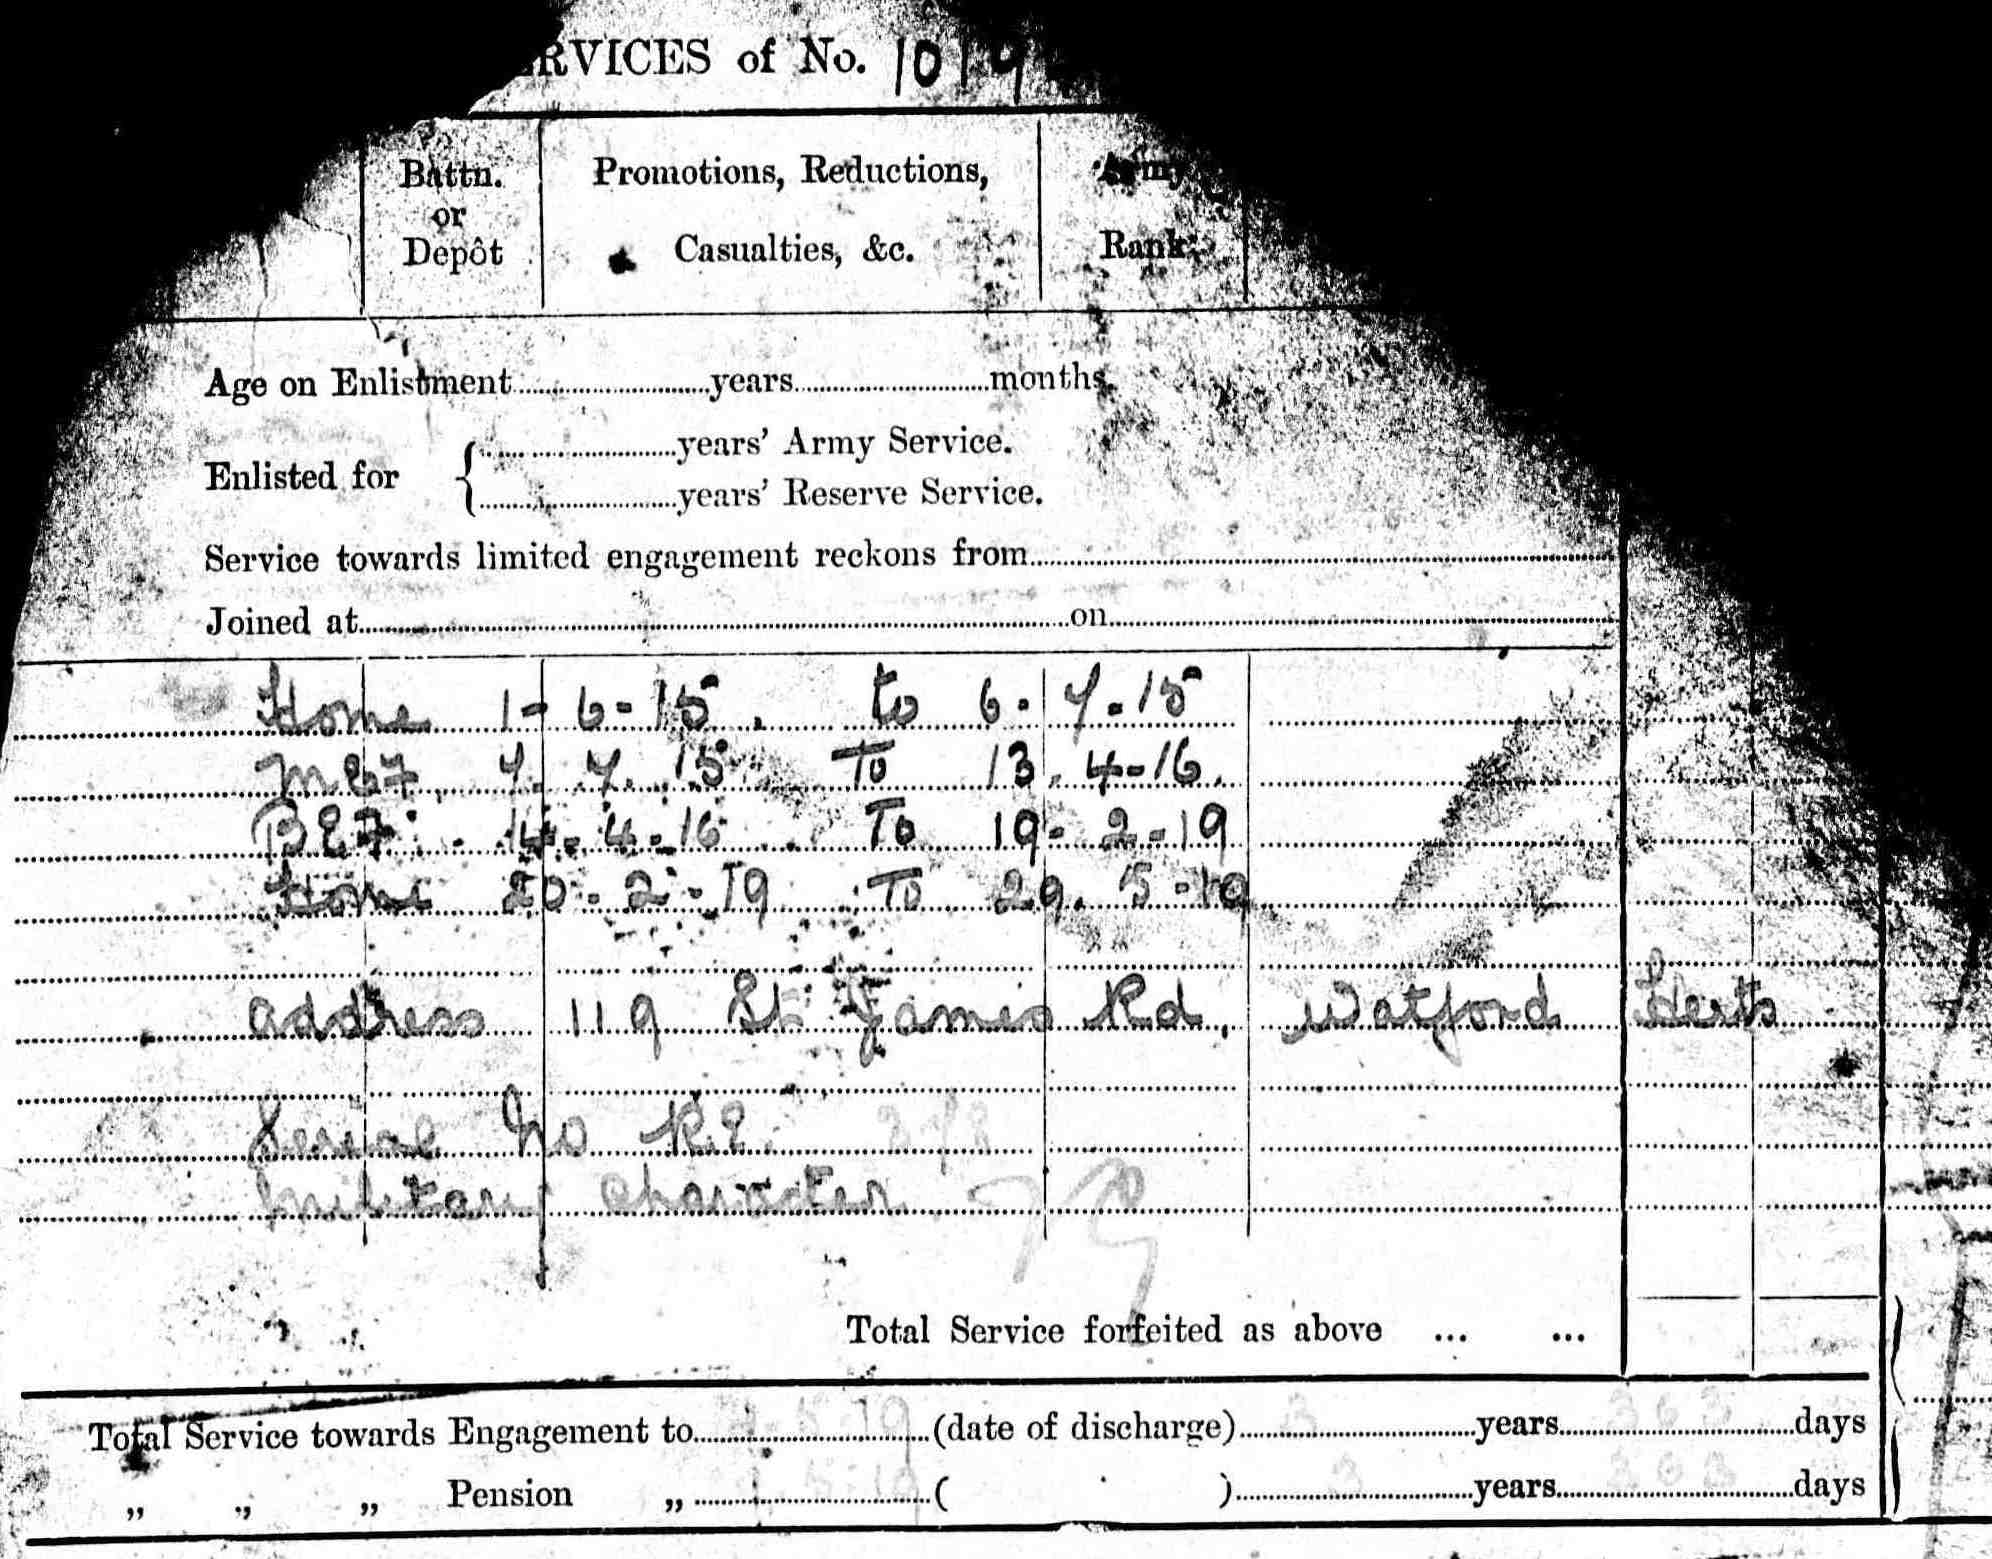 RVICES of No. 1019
Battn. or Depôt
Promotions, Reductions, Casualties, &c.
Army Rank
Age on Enlistment..........years..........months.
Enlisted for { ..........years' Army Service.
..........years' Reserve Service.
Service towards limited engagement reckons from..........
Joined at..........on..........
Home 1-6-15. to 6.7.15
MEF. 7.7.15 To 13.4-16.
BEF. 14-4-16. To 19-2-19
Home 20-2-19 To 29.5-19
address 119 St James Rd, Watford Herts
Serial No R.E.
Military character
Total Service forfeited as above ... ...
Total Service towards Engagement to..........(date of discharge) 3 years 363 days
„ „ „ Pension „ ..........( ) 3 years 363 days